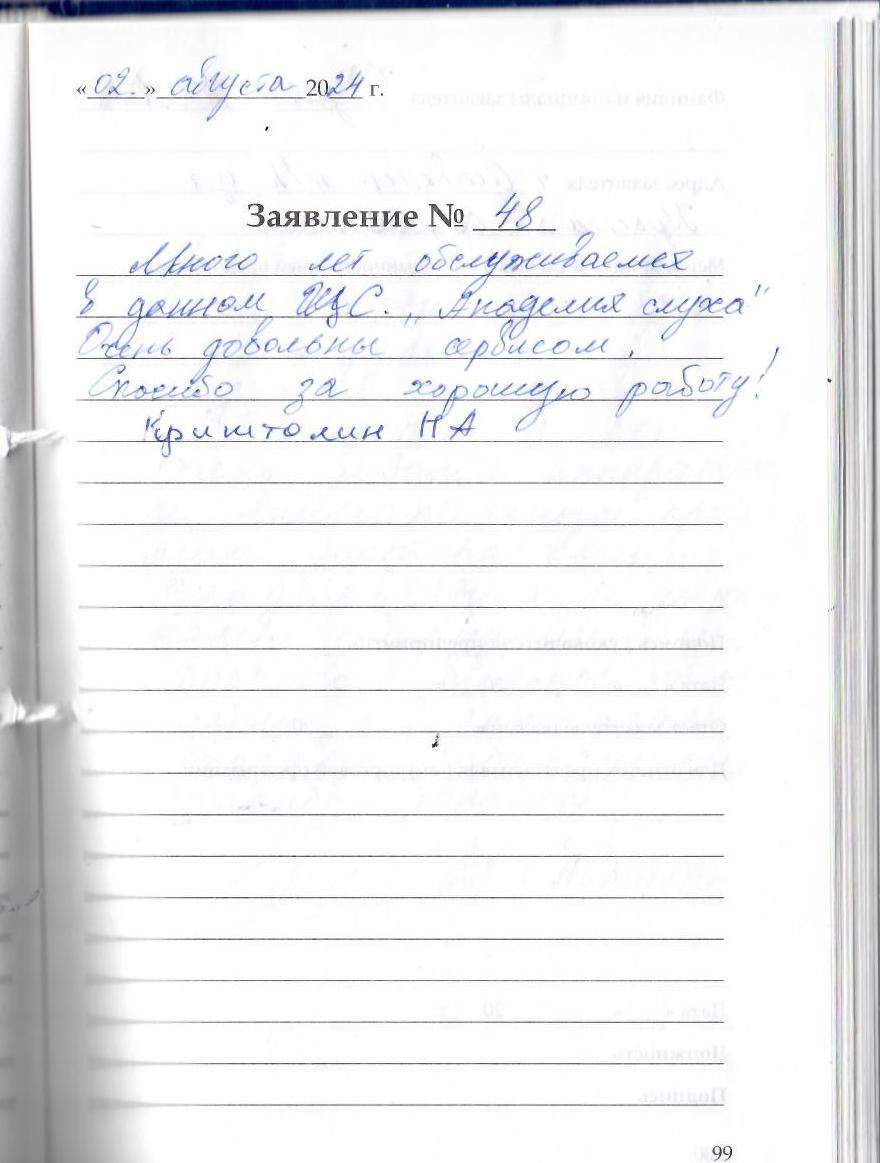 «02.» августа 2024 г.
Заявление № 48
Много лет обслуживаемся
в данном ЦС. „Академия слуха"
Очень довольны сервисом.
Спасибо за хорошую работу!
Кришталин НА
99